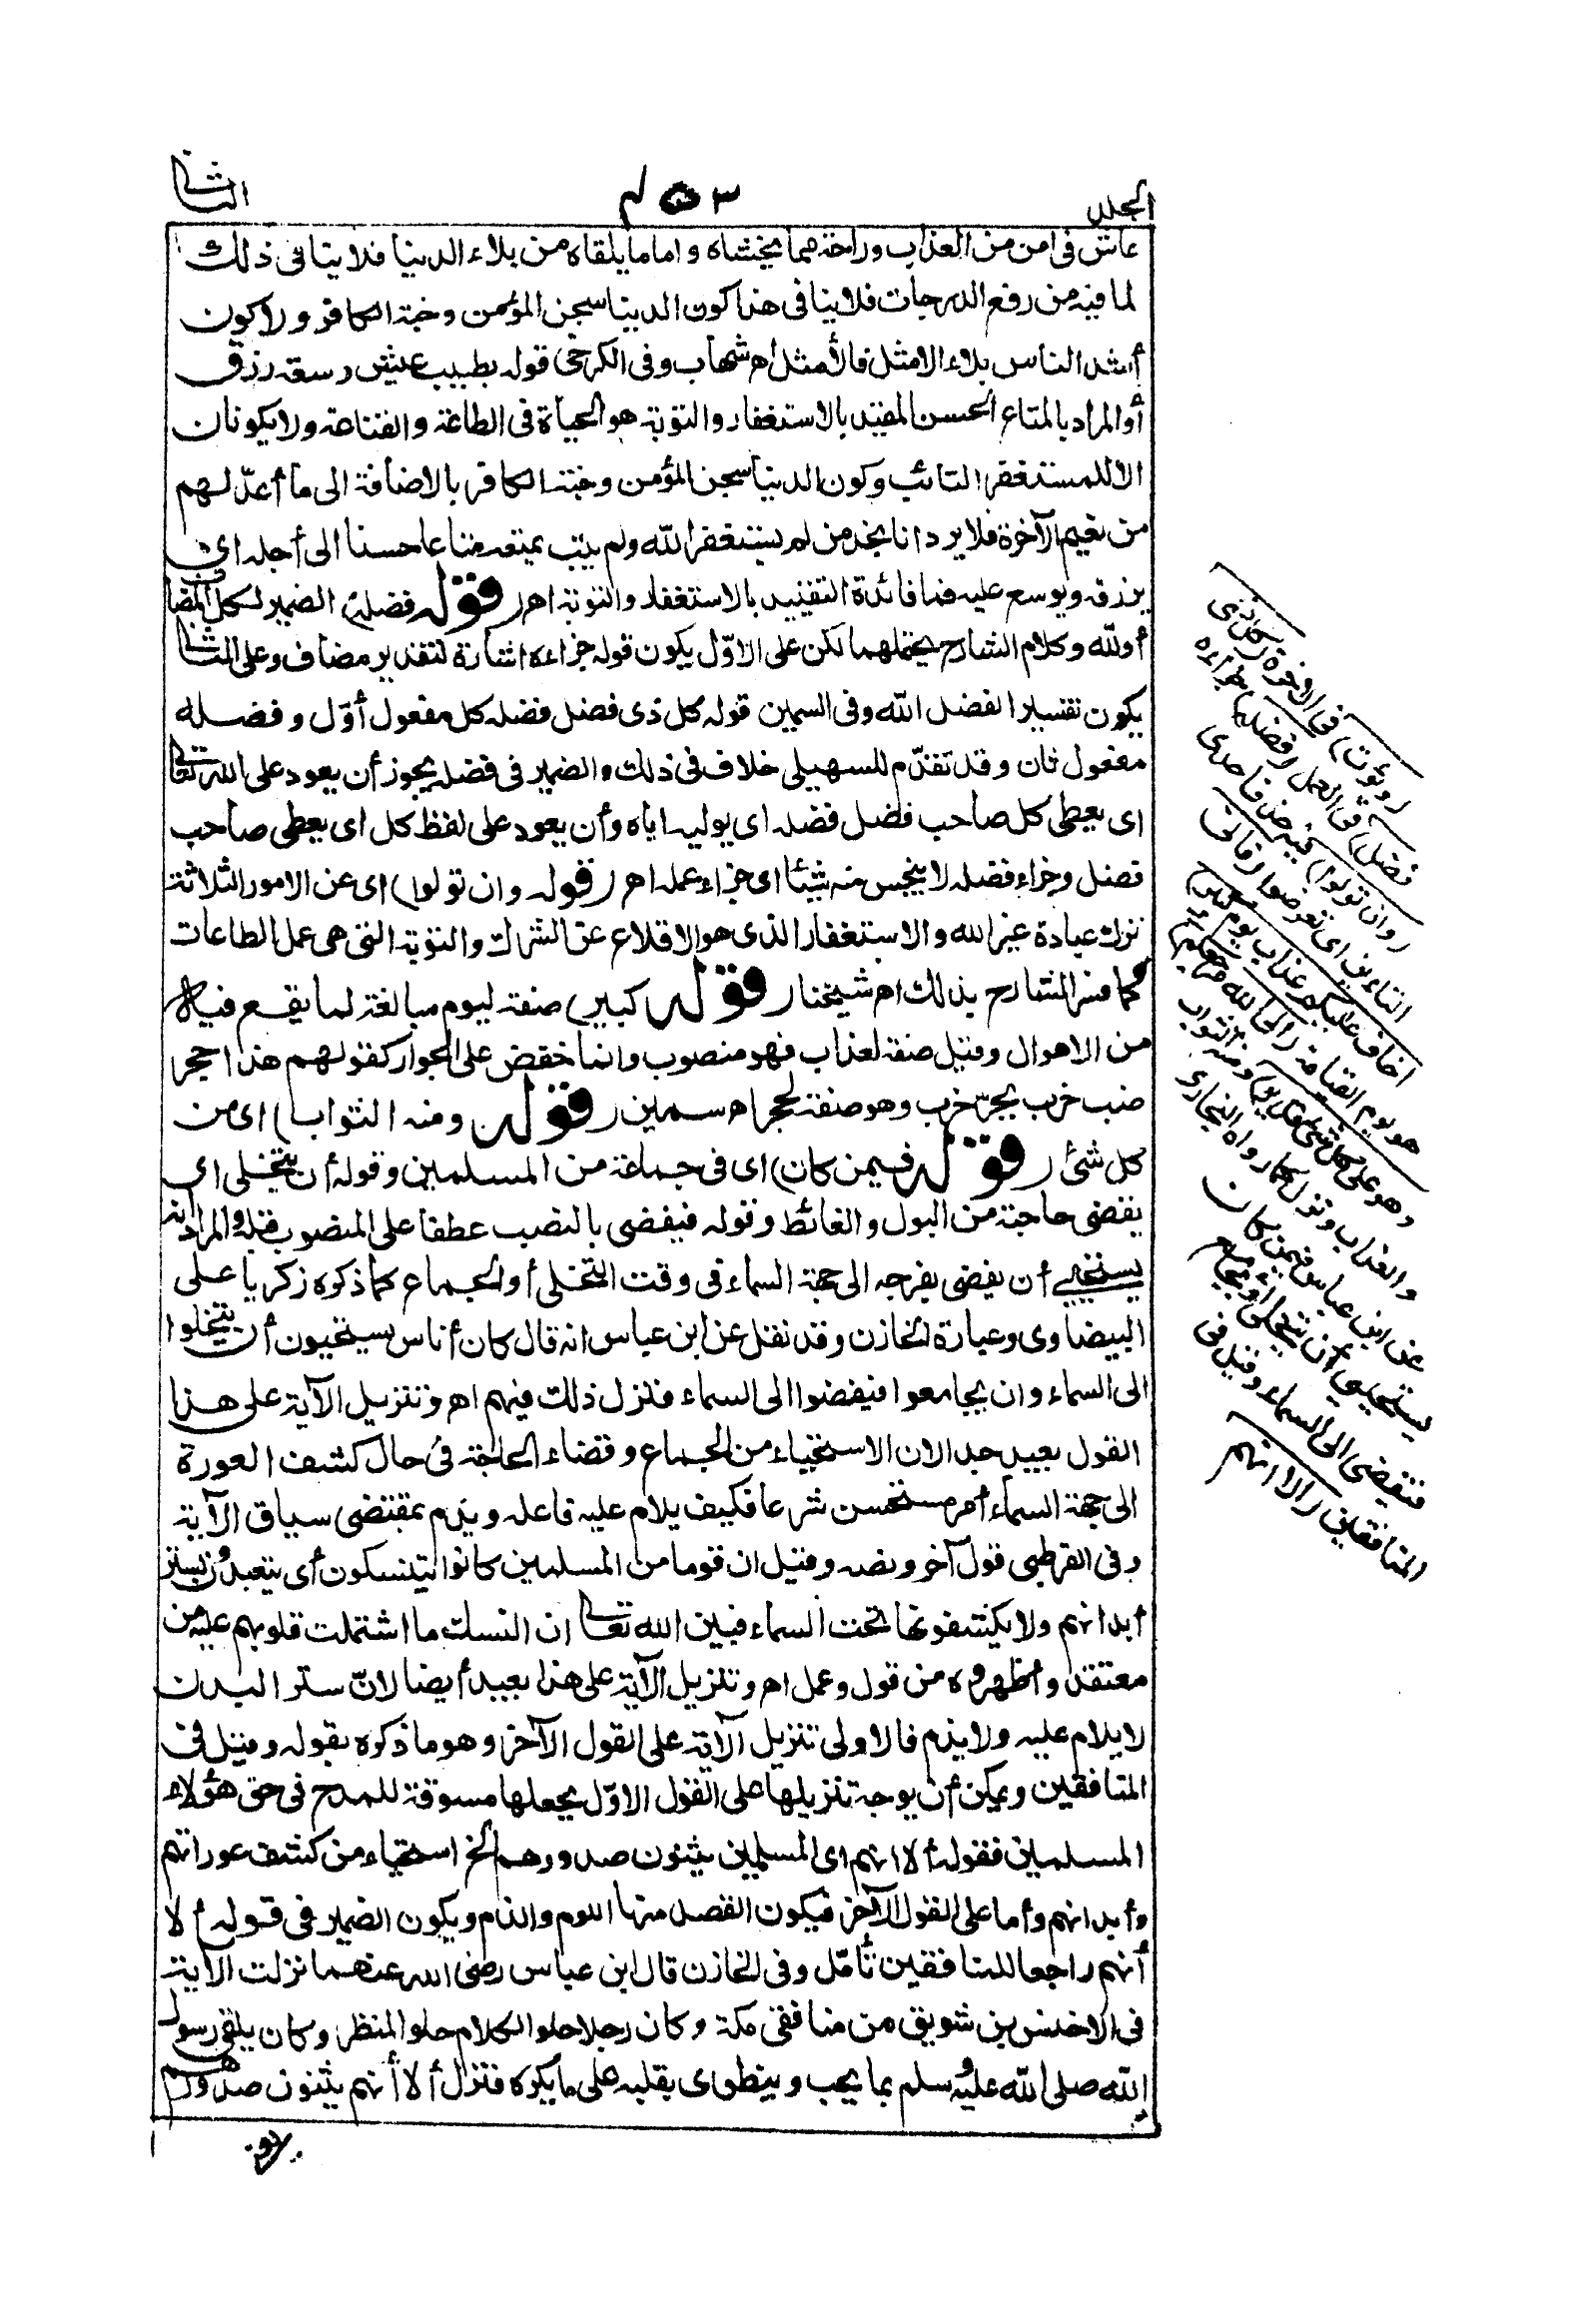 المجلد
الثانى
عاش فى امن من العذاب وراحة مما يخشاه واما ما يلقاه من بلاء الدنيا فلا ينافى ذلك
لما فيه من رفع الدرجات فلا ينافى هذا كون الدنيا سجن المؤمن وجنة الكافر ولا كون
أشد الناس بلاء الامثل فالأمثل اه شهاب وفى الكرخى قوله بطيب عيش وسعة رزق
أو المراد بالمتاع الحسن المقيد بالاستغفار والتوبة هو الحياة فى الطاعة والقناعة ولا يكونان
الا للمستغفر التائب وكون الدنيا سجن المؤمن وجنة الكافر بالاضافة الى ما أعدّ لهم
من نعيم الآخرة فلا يرد انا نجد من لم يستغفر الله ولم يتب يمتعه متاعا حسنا الى أجله اى
يرزقه ويوسع عليه فما فائدة التقييد بالاستغفار والتوبة اهـ (قوله فضله) الضمير لكل المضاف
أولله وكلام الشارح يحتملهما لكن على الاوّل يكون قوله جزاءه اشارة لتقدير مضاف وعلى الثانى
يكون تفسيرا لفضل الله وفى السمين قوله كل ذى فضل فضله كل مفعول أوّل وفضله
مفعول ثان وقد تقدّم للسهيلى خلاف فى ذلك والضمير فى فضله يجوز أن يعود على الله تعالى
اى يعطى كل صاحب فضل فضله اى يوليه اياه وأن يعود على لفظ كل اى يعطى صاحب
فضل وجزاء فضله لا يبخس منه شيئا اى جزاء عمله اهـ (قوله وان تولوا) اى عن الامور الثلاثة
ترك عبادة غير الله والاستغفار الذى هو الاقلاع عن الشرك والتوبة التى هى عمل الطاعات
كما فسر الشارح بذلك اهـ شيخنا (قوله كبير) صفة ليوم مبالغة لما يقع فيه
من الاهوال وقيل صفة لعذاب فهو منصوب وانما خفض على الجوار كقولهم هذا حجر
ضب خرب بجرّ خرب وهو صفة لحجر اهـ سمين (قوله ومنه الثواب) اى من
كل شئ (قوله فيمن كان) اى فى جماعة من المسلمين وقوله أن يتخلى اى
يقضى حاجته من البول والغائط وقوله فيفضى بالنصب عطفا على المنصوب قبله والمراد انه
يستحيى أن يفضى بفرجه الى جهة السماء فى وقت التخلى أو الجماع كما ذكره زكريا على
البيضاوى وعبارة الخازن وقد نقل عن ابن عباس انه قال كان أناس يستحيون أن يتخلوا
الى السماء وان يجامعوا فيفضوا الى السماء فنزل ذلك فيهم اهـ وتنزيل الآية على هذا
القول بعيد جدا لان الاستحياء من الجماع وقضاء الحاجة فى حال كشف العورة
الى جهة السماء أمر مستحسن شرعا فكيف يلام عليه فاعله ويذم بمقتضى سياق الآية
وفى القرطبى قول آخر ونصه وقيل ان قوما من المسلمين كانوا يتنسكون أى يتعبدون بستر
أبدانهم ولا يكشفونها تحت السماء فبين الله تعالى ان النسك ما اشتملت قلوبهم عليه من
معتقد وأظهروه من قول وعمل اهـ وتنزيل الآية على هذا بعيد أيضا لانّ ستر البدن
لا يلام عليه ولا يذم فالاولى تنزيل الآية على القول الآخر وهو ما ذكره بقوله وقيل فى
المنافقين ويمكن أن يوجه تنزيلها على القول الاوّل بجعلها مسوقة للمدح فى حق هؤلاء
المسلمين فقوله ألا انهم اى المسلمين يثنون صدورهم الخ استحياء من كشف عوراتهم
وأبدانهم وأما على القول الآخر فيكون القصد منها اللوم والذم ويكون الضمير فى قوله ألا
أنهم راجعا للمنافقين تأمّل وفى الخازن قال ابن عباس رضى الله عنهما نزلت الآية
فى الاخنس بن شريق من منافقى مكة وكان رجلا حلو الكلام حلو المنظر وكان يلقى رسول
الله صلى الله عليه وسلم بما يحب وينطوى بقلبه على ما يكره فنزل ألا أنهم يثنون صدورهم
(ويؤت) فى الآخرة (كل ذى
فضل) فى العمل (فضله) جزاءه
(وان تولوا) فيه حذف احدى
التاءين اى تعرضوا (فانى
اخاف عليكم عذاب يوم كبير)
هو يوم القيامة (الى الله مرجعكم
وهو على كل شئ قدير) ومنه الثواب
والعذاب ونزل كما رواه البخارى
عن ابن عباس فيمن كان
يستحيى أن يتخلى أو يجامع
فيفضى الى السماء وقيل فى
المنافقين (ألا انهم